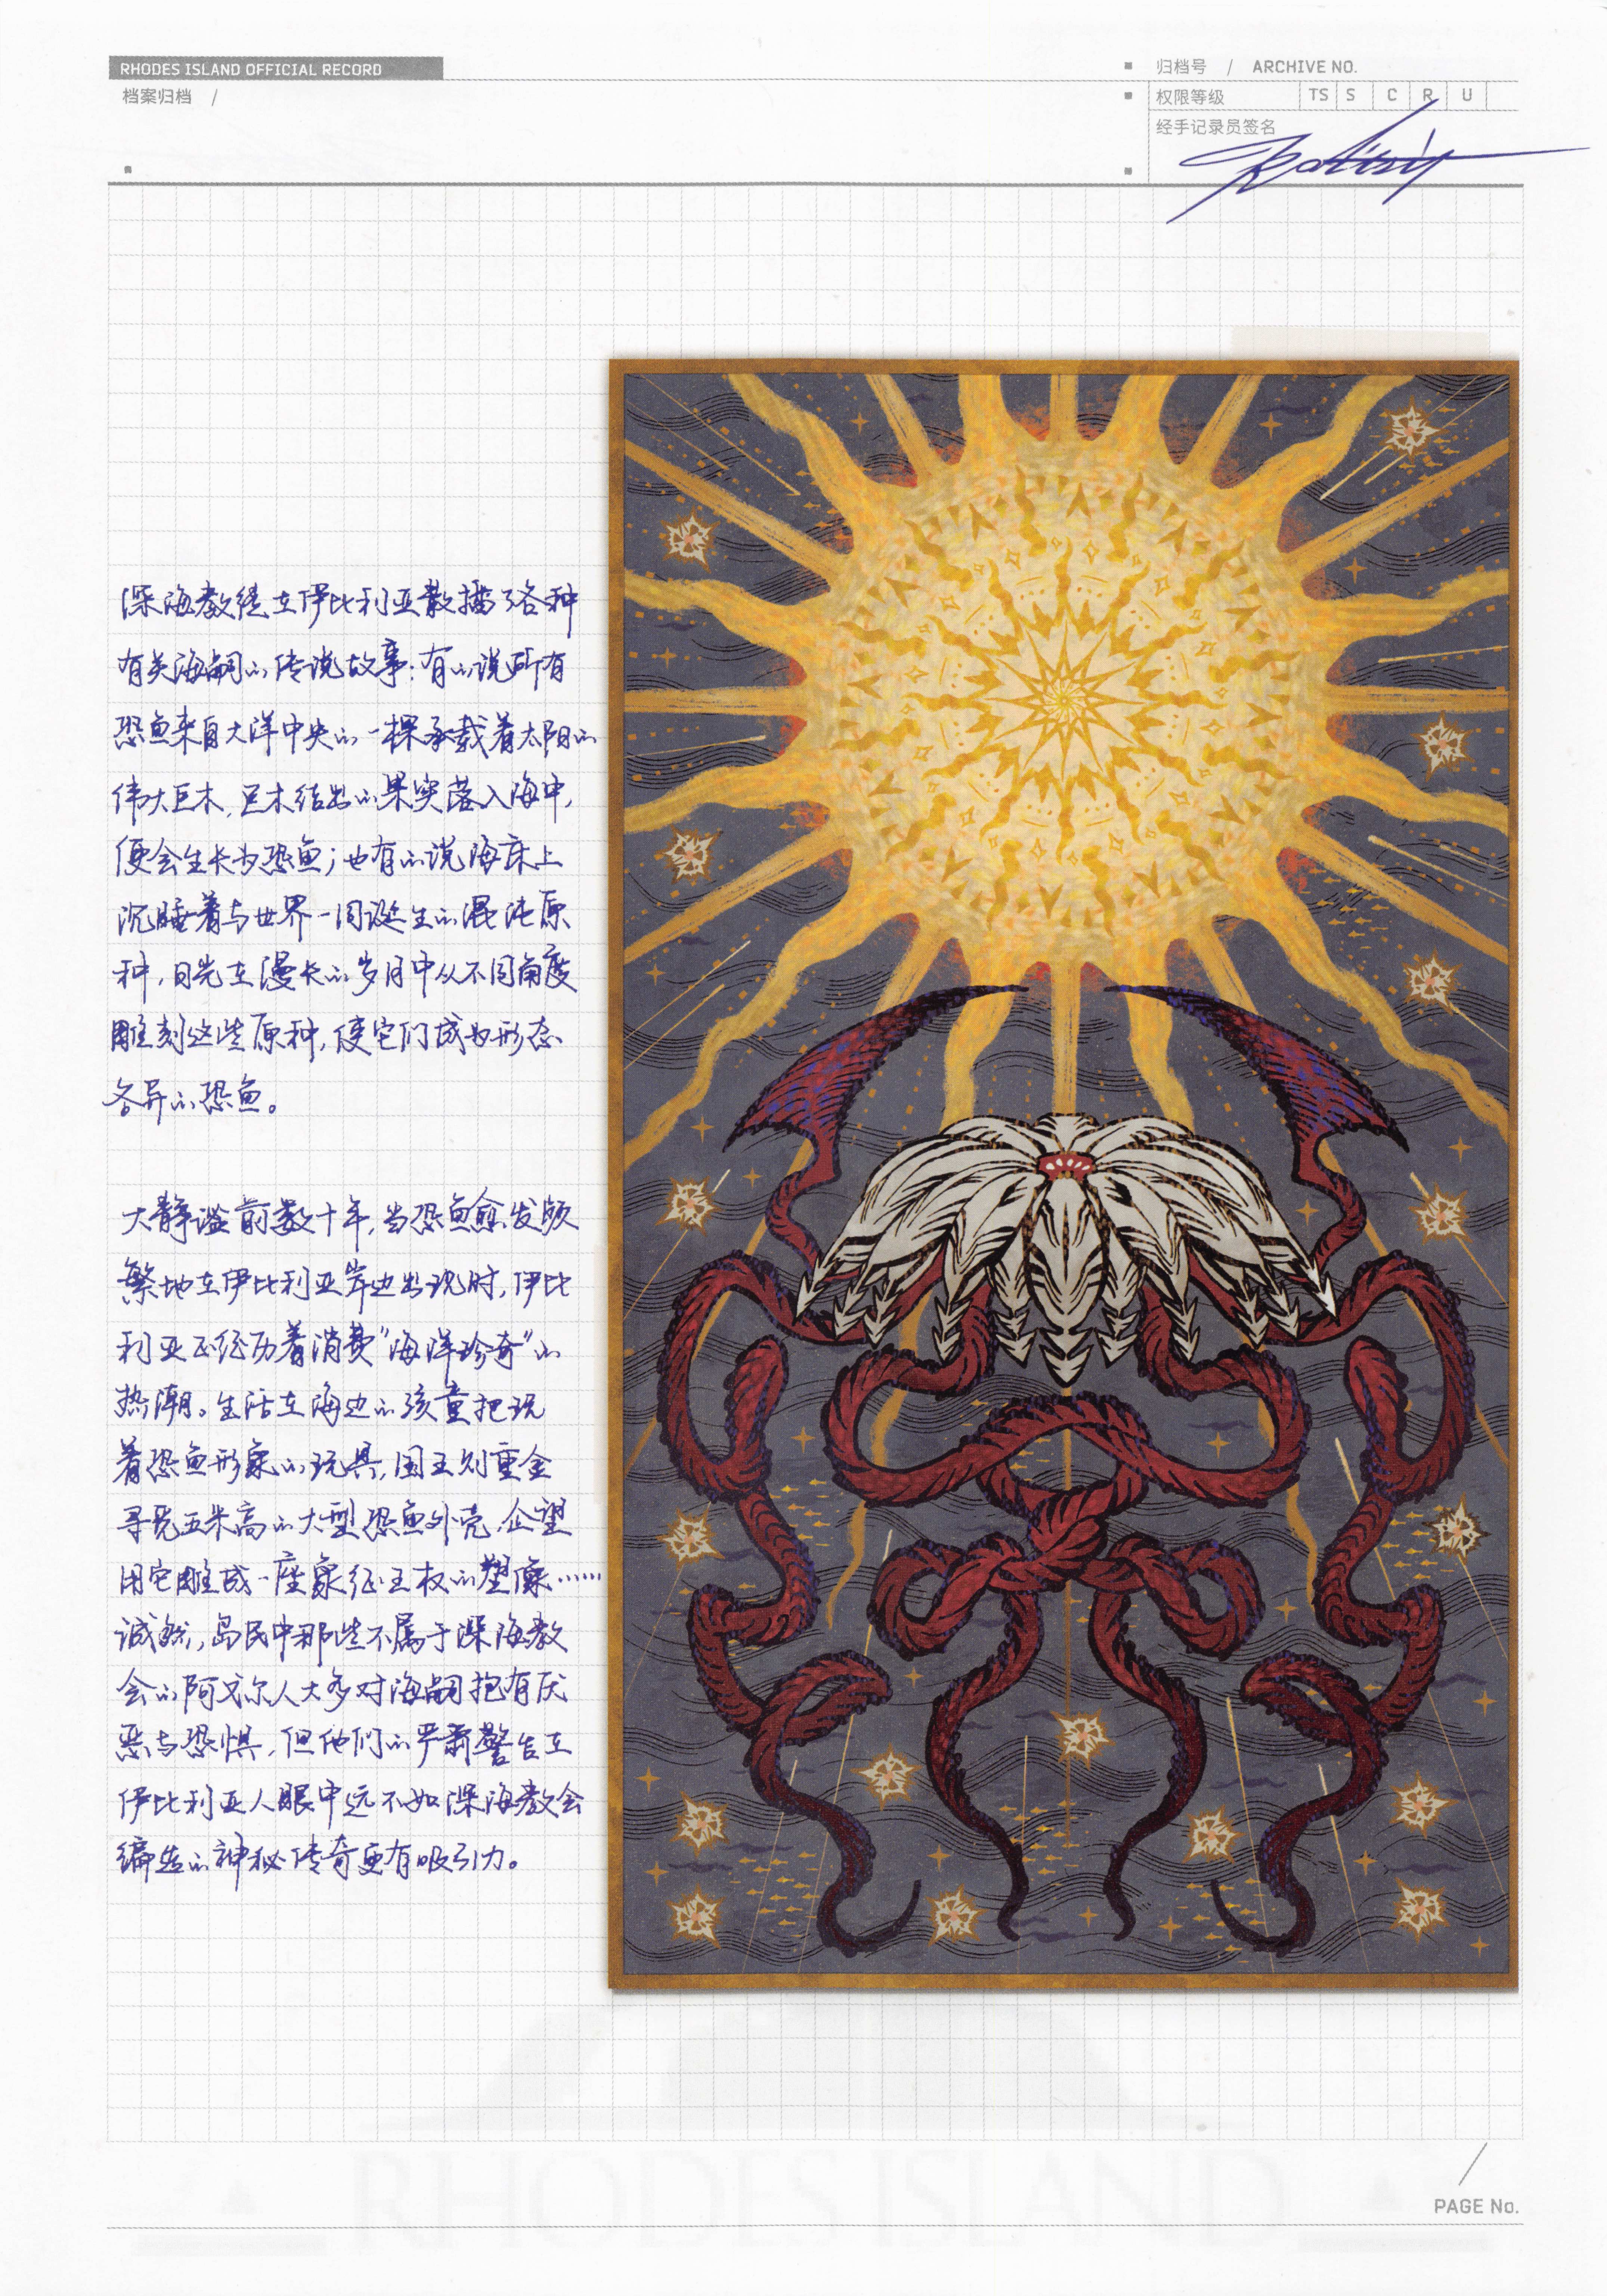 RHODES ISLAND OFFICIAL RECORD
档案归档 /
归档号 / ARCHIVE NO.
权限等级 TS S C R U
经手记录员签名
深海教徒在伊比利亚散播了各种
有关海嗣的传说故事：有的说所有
恐鱼来自大洋中央的一棵承载着太阳的
伟大巨木，巨木结出的果实落入海中，
便会生长为恐鱼；也有的说海床上
沉睡着与世界一同诞生的混沌原
种，日光在漫长的岁月中从不同角度
雕刻这些原种，使它们成为形态
各异的恐鱼。
大静谧前数十年，当恐鱼愈发频
繁地在伊比利亚岸边出现时，伊比
利亚正经历着消费“海洋珍奇”的
热潮。生活在海边的孩童把玩
着恐鱼形象的玩具，国王则重金
寻觅五米高的大型恐鱼外壳，企望
用它雕成一座象征王权的塑像……
诚然，岛民中那些不属于深海教
会的阿戈尔人大多对海嗣抱有厌
恶与恐惧，但他们的严肃警告在
伊比利亚人眼中远不如深海教会
编造的神秘传奇更有吸引力。
RHODES ISLAND
PAGE No.